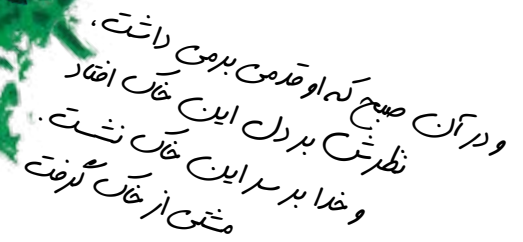 و در آن صبح که او قدمی برمی داشت،
نظرش بر دل این خاک افتاد
و خدا بر سر این خاک نشست.
مشتی از خاک گرفت